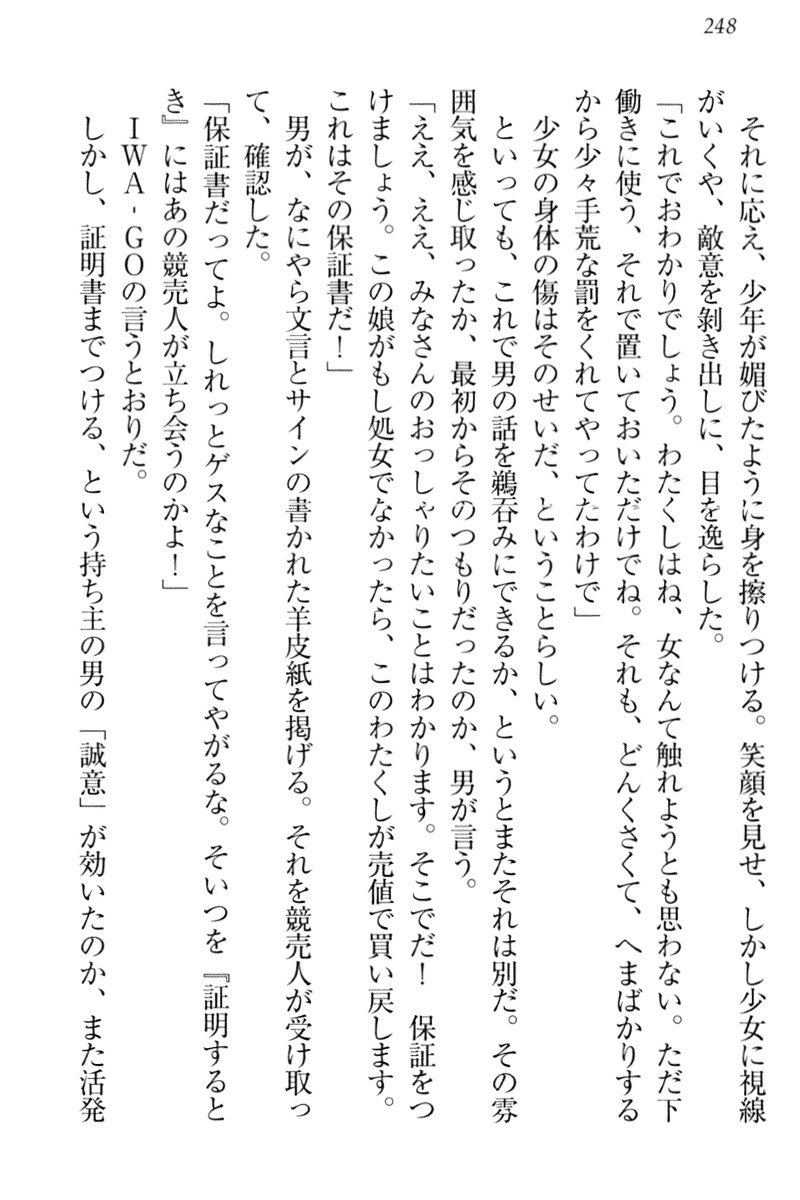 248
それに応え、少年が媚びたように身を擦りつける。笑顔を見せ、しかし少女に視線
がいくや、敵意を剝き出しに、目を逸らした。
「これでおわかりでしょう。わたくしはね、女なんて触れようとも思わない。ただ下
働きに使う、それで置いておいただけでね。それも、どんくさくて、へまばかりする
から少々手荒な罰をくれてやってたわけで」
少女の身体の傷はそのせいだ、ということらしい。
といっても、これで男の話を鵜呑みにできるか、というとまたそれは別だ。その雰
囲気を感じ取ったか、最初からそのつもりだったのか、男が言う。
「ええ、ええ、みなさんのおっしゃりたいことはわかります。そこでだ！　保証をつ
けましょう。この娘がもし処女でなかったら、このわたくしが売値で買い戻します。
これはその保証書だ！」
男が、なにやら文言とサインの書かれた羊皮紙を掲げる。それを競売人が受け取っ
て、確認した。
「保証書だってよ。しれっとゲスなことを言ってやがるな。そいつを『証明すると
き』にはあの競売人が立ち会うのかよ！」
ＩＷＡ‐ＧＯの言うとおりだ。
しかし、証明書までつける、という持ち主の男の「誠意」が効いたのか、また活発